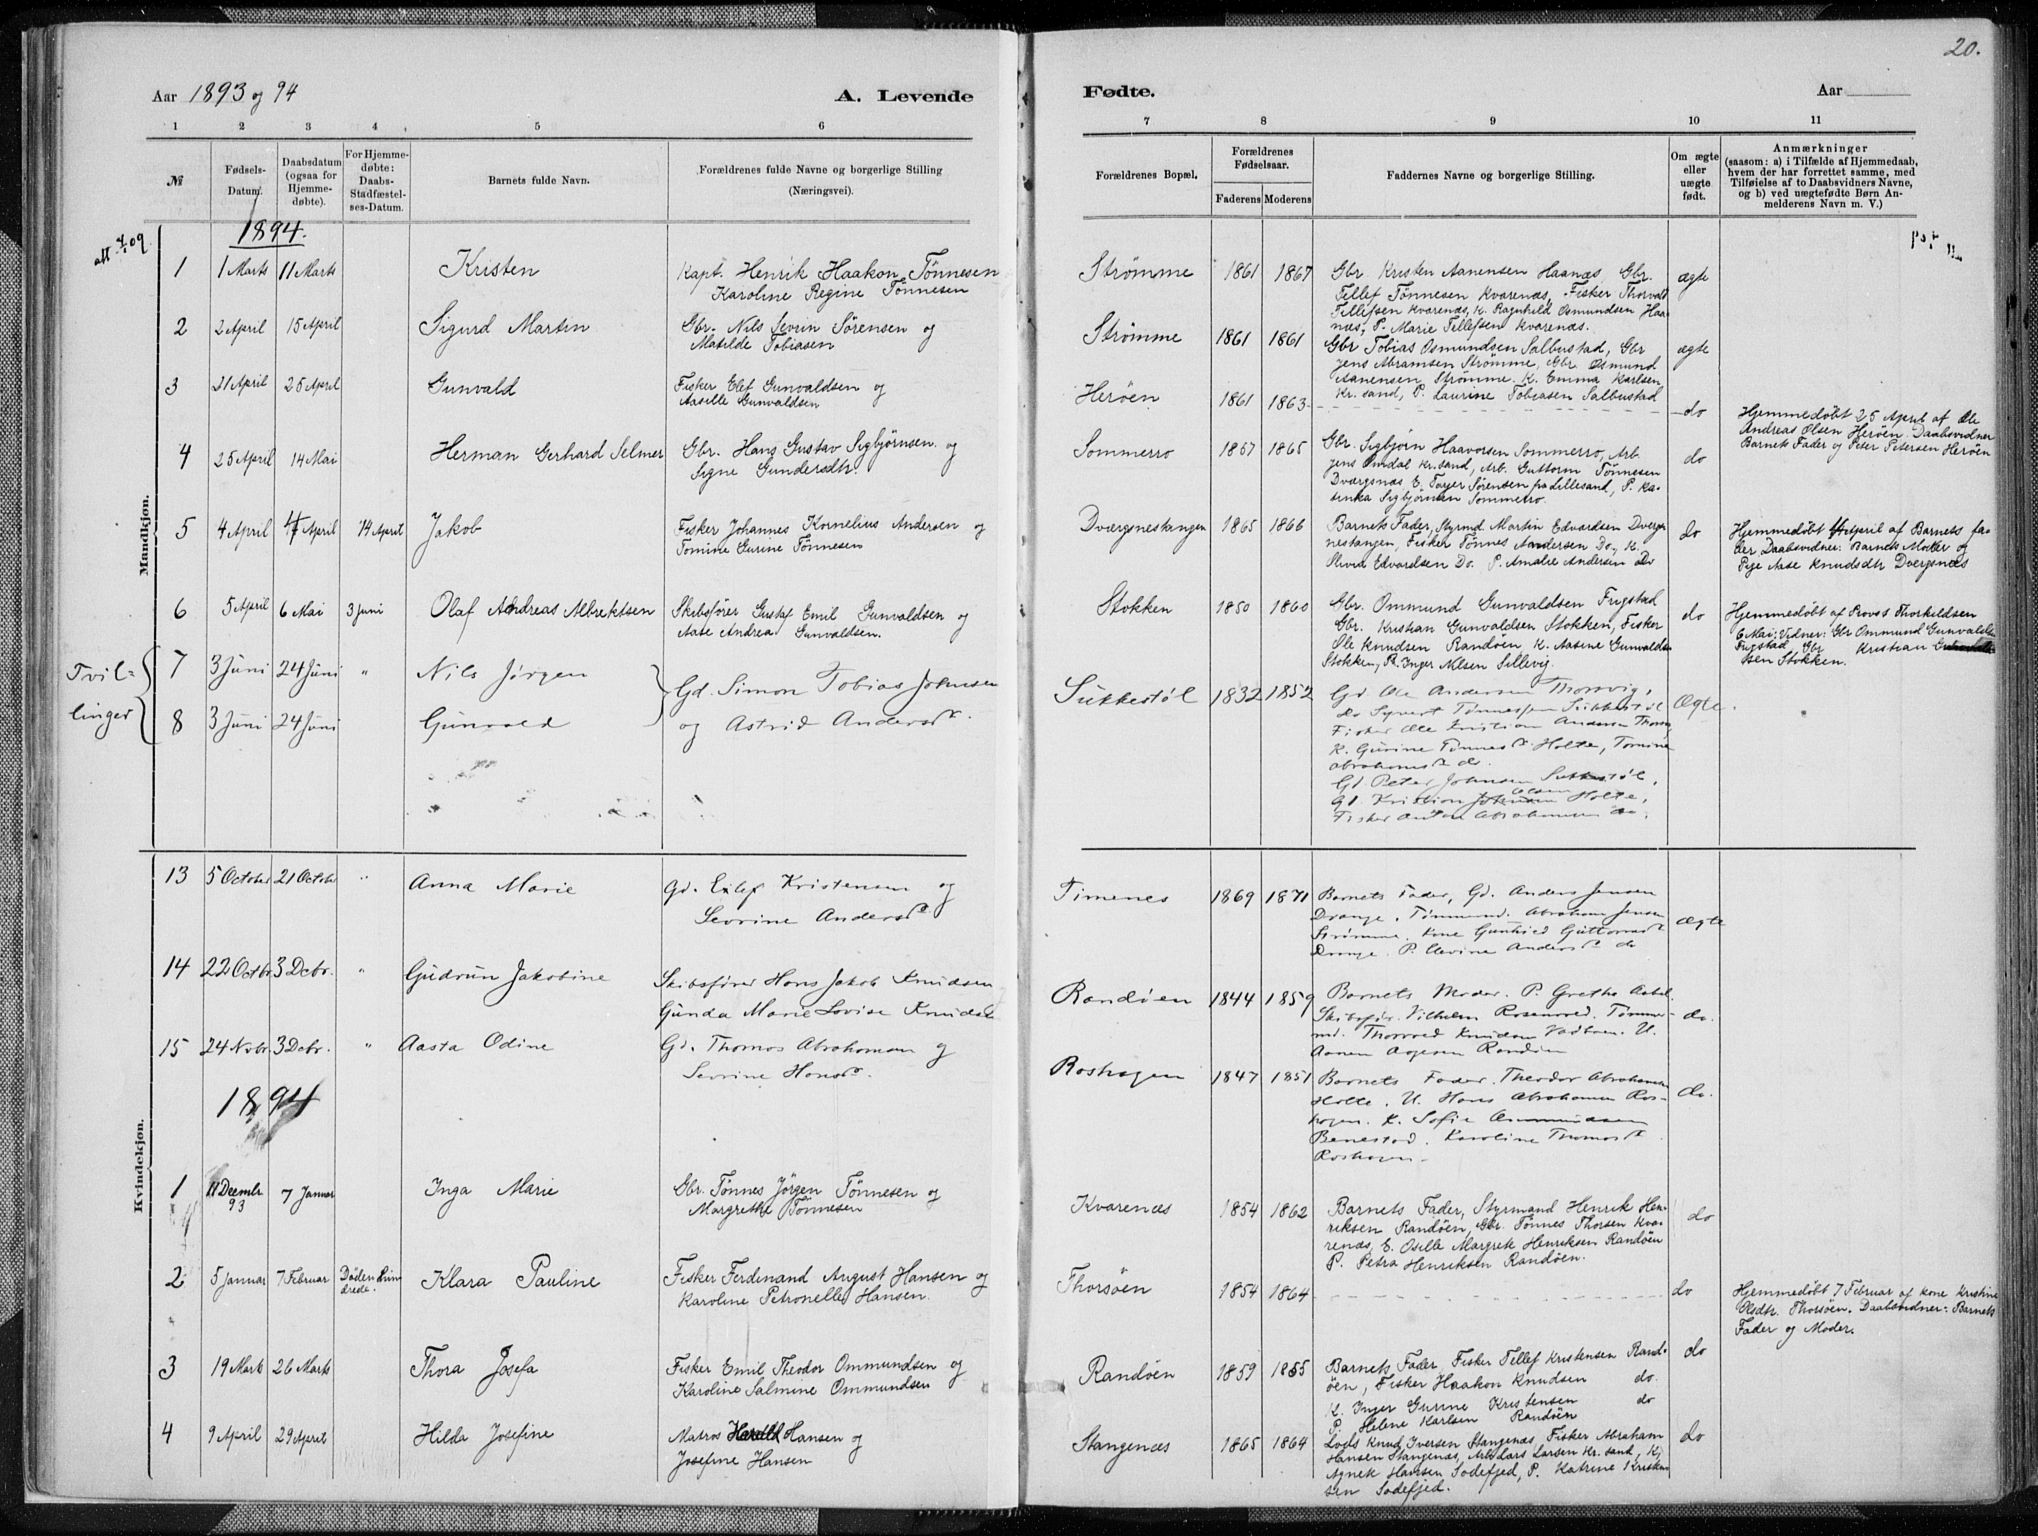 20.
Aar 1893 og 94
A. Levende
Fødte.
Aar
1 2 3 4 5 6
7 8 9 10 11
№
Fødsels-
Datum.
Daabsdatum
(ogsaa for
Hjemme-
døbte).
For Hjemme-
døbte:
Daabs-
Stadfæstel-
ses-Datum.
Barnets fulde Navn.
Forældrenes fulde Navne og borgerlige Stilling
(Næringsvei).
Forældrenes Bopæl.
Forældrenes
Fødselsaar.
Faderens Moderens
Faddernes Navne og borgerlige Stilling.
Om ægte
eller
uægte
født.
Anmærkninger
(saasom: a) i Tilfælde af Hjemmedaab,
hvem der har forrettet samme, med
Tilføielse af to Daabsvidners Navne,
og b) ved uægtefødte Børn An-
melderens Navn m. V.)
Mandkjøn.
1894.
1 1 Marts 11 Marts Kristen
Kapt. Henrik Haakon Tønnesen
Karoline Regine Tønnesen
Strømme 1861 1867
Gbr. Kristen Aanensen Haanæs, Gbr.
Tellef Tønnesen Kvarenæs, Fisker Thorvald
Tellefsen Kvarenæs, K. Ragnhild Osmundsen Haa-
næs, P. Marie Tellefsen Kvarenæs.
ægte
2 2 April 15 April Sigurd Martin
Gbr. Nils Severin Sørensen og
Matilde Tobiasen
Strømme 1861 1861
Gbr Tobias Osmundsen Salbustad, Gbr
Jens Abramsen Strømme, Gbr Osmund
Aanensen Strømme. K. Emma Karlsen
Kr. sand, P. Laurine Tobiasen Salbustad
ægte
3 21 April 25 April Gunvald
Fisker Elef Gunvaldsen og
Aasille Gunvaldsen
Herøen 1861 1863
do
Hjemmedøbt 25 April af Ole
Andreas Olsen Herøen. Daabsvidner
Barnets Fader og Peter Petersen Herøen
4 25 April 14 Mai Herman Gerhard Selmer
Gbr. Hans Gustav Sigbjørnsen og
Signe Gundersdtr.
Sommerro 1857 1865
Gbr. Sigbjørn Haavorsen Sommerro, Arb.
Jens Omdal Kr. sand, Arb. Guttorm Tønnesen
Dværgsnæs, E. Tarjer Sørensen fra Lillesand, P. Ka-
tinka Sigbjørnsen Sommerro
do
5 4 April 4 April 14 April Jakob
Fisker Johannes Kornelius Andersen og
Tomine Gurine Tønnesen
Dværgnestangen 1865 1866
Barnets Fader, Styrmd Martin Edvardsen Dverg-
nestangen, Fisker Tønnes Andersen Do, K.
Olivia Edvardsen Do. P. Amalie Andersen Do
do
Hjemmedøbt 4 April af Barnets Fa-
der Daabsvidner: Barnets Moder og
Pige Aase Knudsdtr Dvergsnæs
6 5 April 6 Mai 3 Juni Olaf Andreas Albrektsen
Skibsfører Gustaf Emil Gunvaldsen og
Aase Andrea Gunvaldsen.
Stokken 1850 1860
Gbr. Ommund Gunvaldsen Frigstad
Gbr. Kristian Gunvaldsen Stokken, Fisker
Ole Knudsen Randøen K. Aasine Gunvaldsen
Stokken, P. Inger Nilsen Sillevig.
do
Hjemmedøbt af Provst Thorkildsen
6 Mai: Vidner: Gbr Ommund Gunvaldsen
Frigstad Gbr Kristian Gunvald-
sen Stokken.
Tvil-
linger
7 3 Juni 24 Juni " Nils Jørgen
8 3 Juni 24 Juni Gunvald
Gd. Simon Tobias Johnsen
og Astrid Andersdr.
Sukkestøl 1832 1852
Gd Ole Andersen Thorsvig,
do Syvert Tønnessen Sukkestøl
Fisker Ole Kristian Andersen Thorsvig,
K. Gurine Tønnesdr. Holte, Tomine
Abrahamsdr. do.
Gd. Peter Johnsen Sukkestøl,
Gd. Kristian Olsen Holte,
Fisker Anton Abrahamsen do.
Ægte.
Kvindekjøn.
13 5 October 21 Octobr " Anna Marie
Gd. Eilef Kristensen og
Sevrine Andersdr.
Timenes 1869 1871
Barnets Fader, Gd. Anders Jensen
Drange, Tømmermd. Abraham Jensen
Strømme. Kone Gunhild Guttormsdr.
Drange. P. Elevine Andersdr. do
ægte
14 22 Octbr. 3 Debr. " Gudrun Jakobine
Skibsfører Hans Jakob Knudsen
Gunda Marie Lovise Knudsen
Randøen 1844 1859
Barnets Moder. P. Grethe Aabel.
Skibsfør. Vilhelm Rosenvold. Tømmer-
md. Thorvald Knudsen
Aanen Aagesen Randøen
do.
15 24 Novbr. 3 Debr. " Aasta Odine
Gd. Thomas Abrahamsen og
Sevrine Hansdr.
Roshagen 1847 1851
Barnets Fader. Theodor Abrahamsen
Holte. U. Hans Abrahamsen Ros-
hagen. K. Sofie Ommundsen
Benestad. Karoline Thomasdr.
Roshagen.
do.
1894
1 11 Decembr 93 7 Januar Inga Marie
Gbr. Tønnes Jørgen Tønnesen og
Margrethe Tønnesen
Kvarenæs 1854 1862
Barnets Fader, Styrmand Henrik Hen-
riksen Randøen, Gbr. Tønnes Thorsen Kva-
renæs, E. Osille Margrete Henriksen Randøen
P. Petra Henriksen Randøen.
do
2 5 Januar 7 Februar Døden hin-
drede. Klara Pauline
Fisker Ferdinand August Hansen og
Karoline Petronelle Hansen.
Thorsøen 1854 1864
do
Hjemmedøbt 7 Februar af Kone Kristine
Olsdtr. Thorsøen. Daabsvidner: Barnets
Fader og Moder.
3 19 Marts 26 Marts Thora Josefa
Fisker Emil Theodor Ommundsen og
Karoline Salmine Ommundsen
Randøen 1859 1855
Barnets Fader, Fisker Tellef Kristensen Rand-
øen, Fisker Haakon Knudsen do.
K. Inger Gurine Kristensen do
P. Helene Karlsen Randøen
do
4 9 April 29 April Hilda Josefine
Matros Harald Hansen og
Josefine Hansen
Stangenæs 1865 1864
Lods Knud Iversen Stangenæs, Fisker Abraham
Hansen Stangenæs, Arb. Lars Larsen Kr. sand, K.
Agnete Hansen Sodefjed, P. Katrine Kristian-
sen Sodefjed.
do